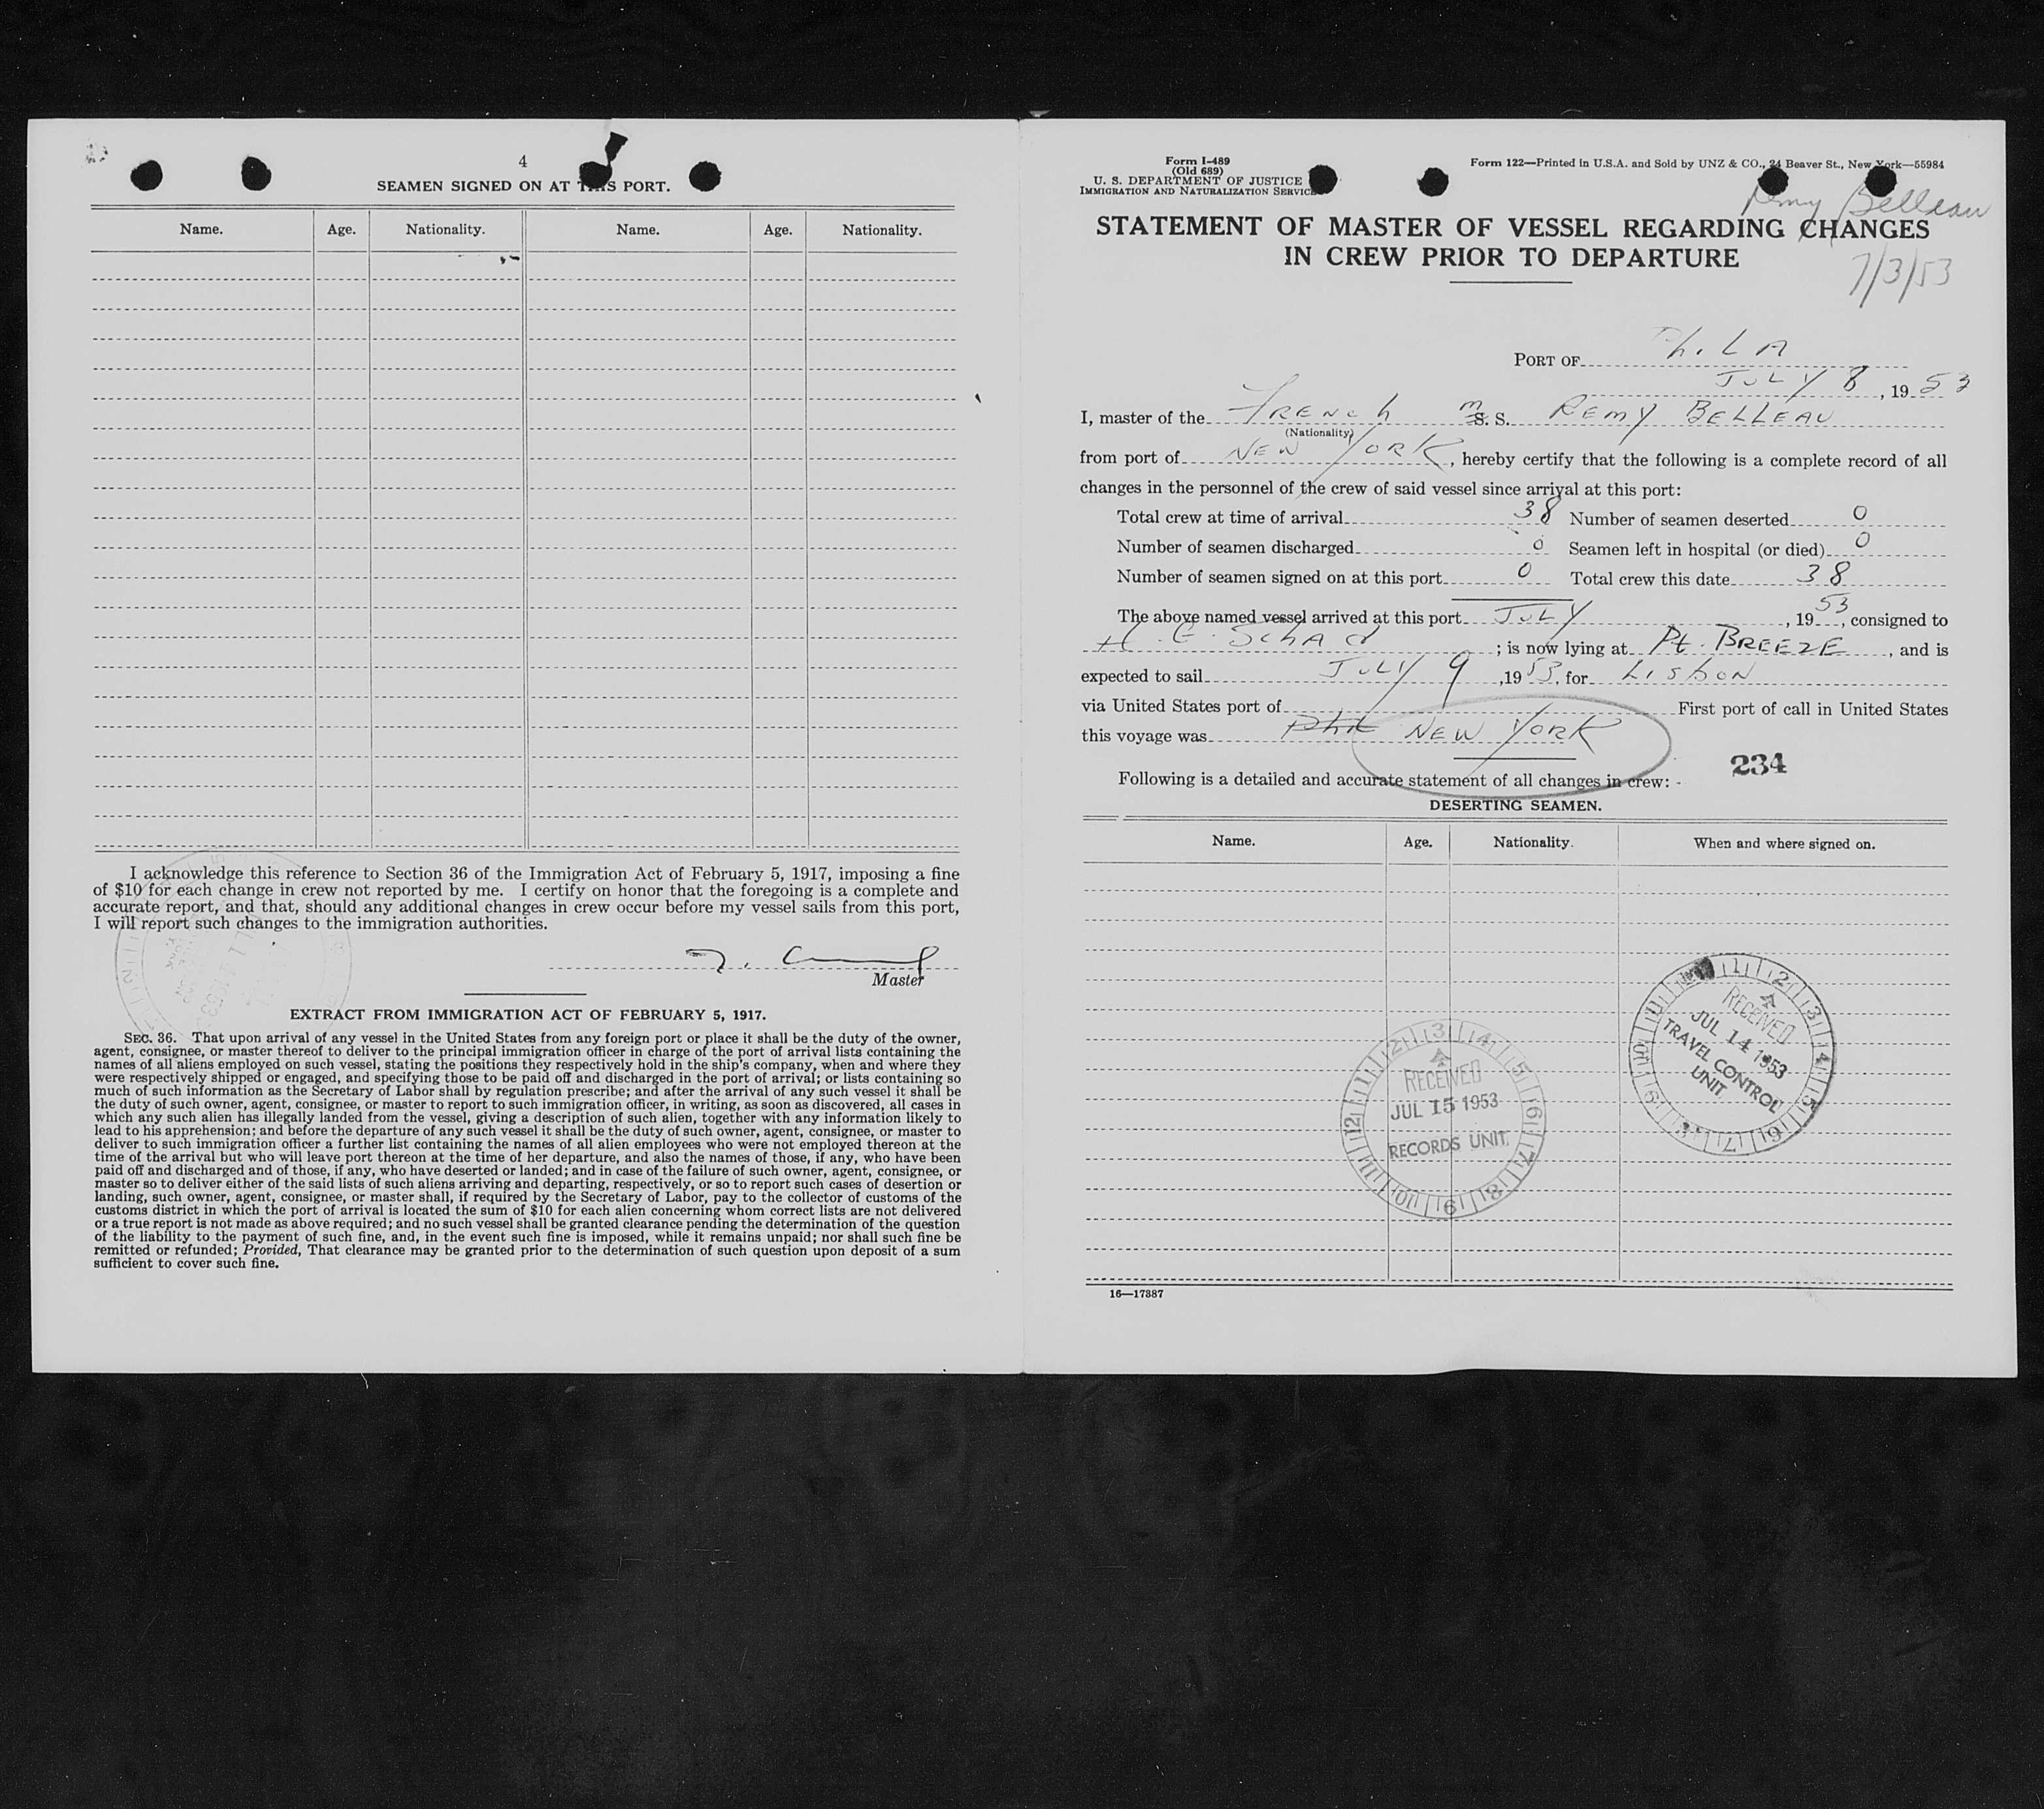 4
SEAMEN SIGNED ON AT THIS PORT.
Name. Age. Nationality. Name. Age. Nationality.
I acknowledge this reference to Section 36 of the Immigration Act of February 5, 1917, imposing a fine
of $10 for each change in crew not reported by me. I certify on honor that the foregoing is a complete and
accurate report, and that, should any additional changes in crew occur before my vessel sails from this port,
I will report such changes to the immigration authorities.
Master
EXTRACT FROM IMMIGRATION ACT OF FEBRUARY 5, 1917.
SEC. 36. That upon arrival of any vessel in the United States from any foreign port or place it shall be the duty of the owner,
agent, consignee, or master thereof to deliver to the principal immigration officer in charge of the port of arrival lists containing the
names of all aliens employed on such vessel, stating the positions they respectively hold in the ship's company, when and where they
were respectively shipped or engaged, and specifying those to be paid off and discharged in the port of arrival; or lists containing so
much of such information as the Secretary of Labor shall by regulation prescribe; and after the arrival of any such vessel it shall be
the duty of such owner, agent, consignee, or master to report to such immigration officer, in writing, as soon as discovered, all cases in
which any such alien has illegally landed from the vessel, giving a description of such alien, together with any information likely to
lead to his apprehension; and before the departure of any such vessel it shall be the duty of such owner, agent, consignee, or master to
deliver to such immigration officer a further list containing the names of all alien employees who were not employed thereon at the
time of the arrival but who will leave port thereon at the time of her departure, and also the names of those, if any, who have been
paid off and discharged and of those, if any, who have deserted or landed; and in case of the failure of such owner, agent, consignee, or
master so to deliver either of the said lists of such aliens arriving and departing, respectively, or so to report such cases of desertion or
landing, such owner, agent, consignee, or master shall, if required by the Secretary of Labor, pay to the collector of customs of the
customs district in which the port of arrival is located the sum of $10 for each alien concerning whom correct lists are not delivered
or a true report is not made as above required; and no such vessel shall be granted clearance pending the determination of the question
of the liability to the payment of such fine, and, in the event such fine is imposed, while it remains unpaid; nor shall such fine be
remitted or refunded; Provided, That clearance may be granted prior to the determination of such question upon deposit of a sum
sufficient to cover such fine.
Form I-489
(Old 689)
U. S. DEPARTMENT OF JUSTICE
IMMIGRATION AND NATURALIZATION SERVICE
Form 122—Printed in U.S.A. and Sold by UNZ & CO., 24 Beaver St., New York—55984
Remy Belleau
STATEMENT OF MASTER OF VESSEL REGARDING CHANGES
IN CREW PRIOR TO DEPARTURE
7/3/53
PORT OF PhiLA
JULY 8, 1953
I, master of the FRENCh m S. S. REMY BELLEAU
(Nationality)
from port of NEW YORK, hereby certify that the following is a complete record of all
changes in the personnel of the crew of said vessel since arrival at this port:
Total crew at time of arrival 38 Number of seamen deserted 0
Number of seamen discharged 0 Seamen left in hospital (or died) 0
Number of seamen signed on at this port 0 Total crew this date 38
The above named vessel arrived at this port JULY, 1953, consigned to
H. E. SchAd; is now lying at Pt. BREEZE, and is
expected to sail JULY 9, 1953, for LISbON
via United States port of First port of call in United States
this voyage was NEW YORK
234
Following is a detailed and accurate statement of all changes in crew:
DESERTING SEAMEN.
Name. Age. Nationality. When and where signed on.
RECEIVED
JUL 14 1953
TRAVEL CONTROL
UNIT
RECEIVED
JUL 15 1953
RECORDS UNIT
16—17387